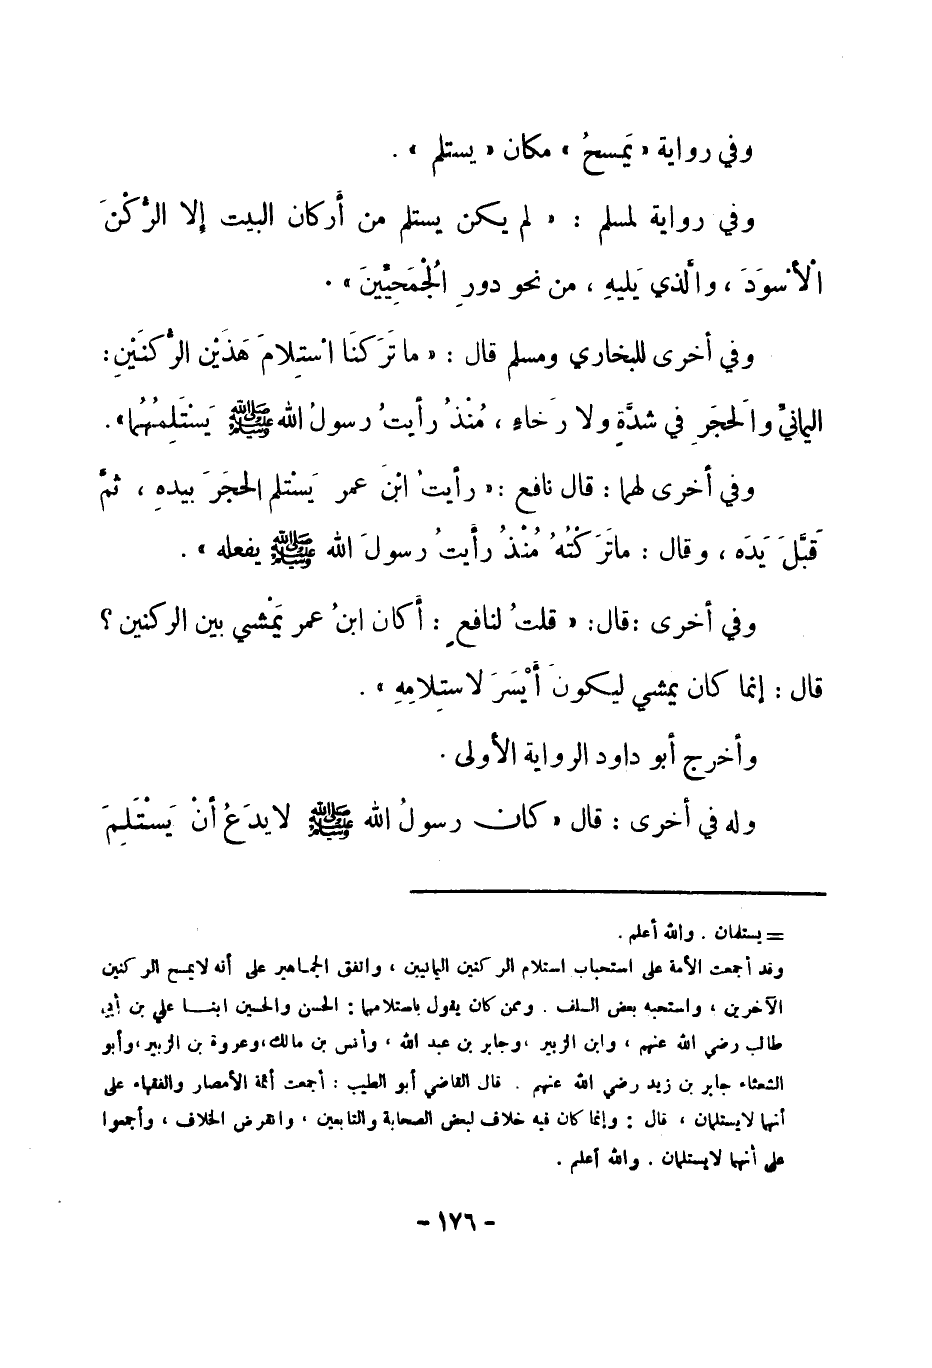 وفي رواية « يَمسحُ » مكان « يستلم » .
وفي رواية لمسلم : « لم يكن يستلم من أركان البيت إلا الرُّكْنَ
الْأسْوَدَ ، والَّذي يَليهِ ، من نحو دورِ الْجُمَحِيِّينَ » .
وفي أخرى للبخاري ومسلم قال : « ما تَرَكنَا اسْتِلامَ هَذَيْنِ الرُّكنَيْنِ :
اليمانيِّ والَحجَرِ في شدَّةٍ ولا رَخاءٍ ، مُنْذُ رأيتُ رسولُ الله ﷺ يَسْتَلِمُهُما» .
وفي أخرى لهما : قال نافع : « رأيتُ ابْنَ عمر يَستلم الحجَرَ بيدهِ ، ثمَّ
قَبَّلَ يَدَه ، وقال : ماتَرَكْتُهُ مُنْذُ رأيتُ رسولَ الله ﷺ يفعله » .
وفي أخرى :قال: « قلتُ لنافعٍ : أَكان ابنُ عمر يَمْشي بين الركنين ؟
قال : إنما كان يمشي ليكونَ أَيْسَرَ لاستِلامِهِ » .
وأخرج أبو داود الرواية الأولى .
وله في أخرى : قال « كان رسولُ الله ﷺ لايدَعُ أنْ يَسْتَلِمَ
= يستلمان . والله أعلم .
وقد أجمعت الأمة على استحباب استلام الركنين اليمانيين ، واتفق الجماهير على أنه لايمسح الركنين
الآخرين ، واستحبه بعض السلف . وممن كان يقول باستلامهما : الحسن والحسين ابنا علي بن أبي
طالب رضي الله عنهم ، وابن الزبير ،وجابر بن عبد الله ، وأنس بن مالك،وعروة بن الزبير،وأبو
الشعثاء جابر بن زيد رضي الله عنهم . قال القاضي أبو الطيب : أجمعت أئمة الأمصار والفقهاء على
أنهما لايستلمان ، قال : وإنما كان فيه خلاف لبعض الصحابة والتابعين ، وانقرض الخلاف ، وأجمعوا
على أنهما لايستلمان . والله أعلم .
- ١٧٦ -